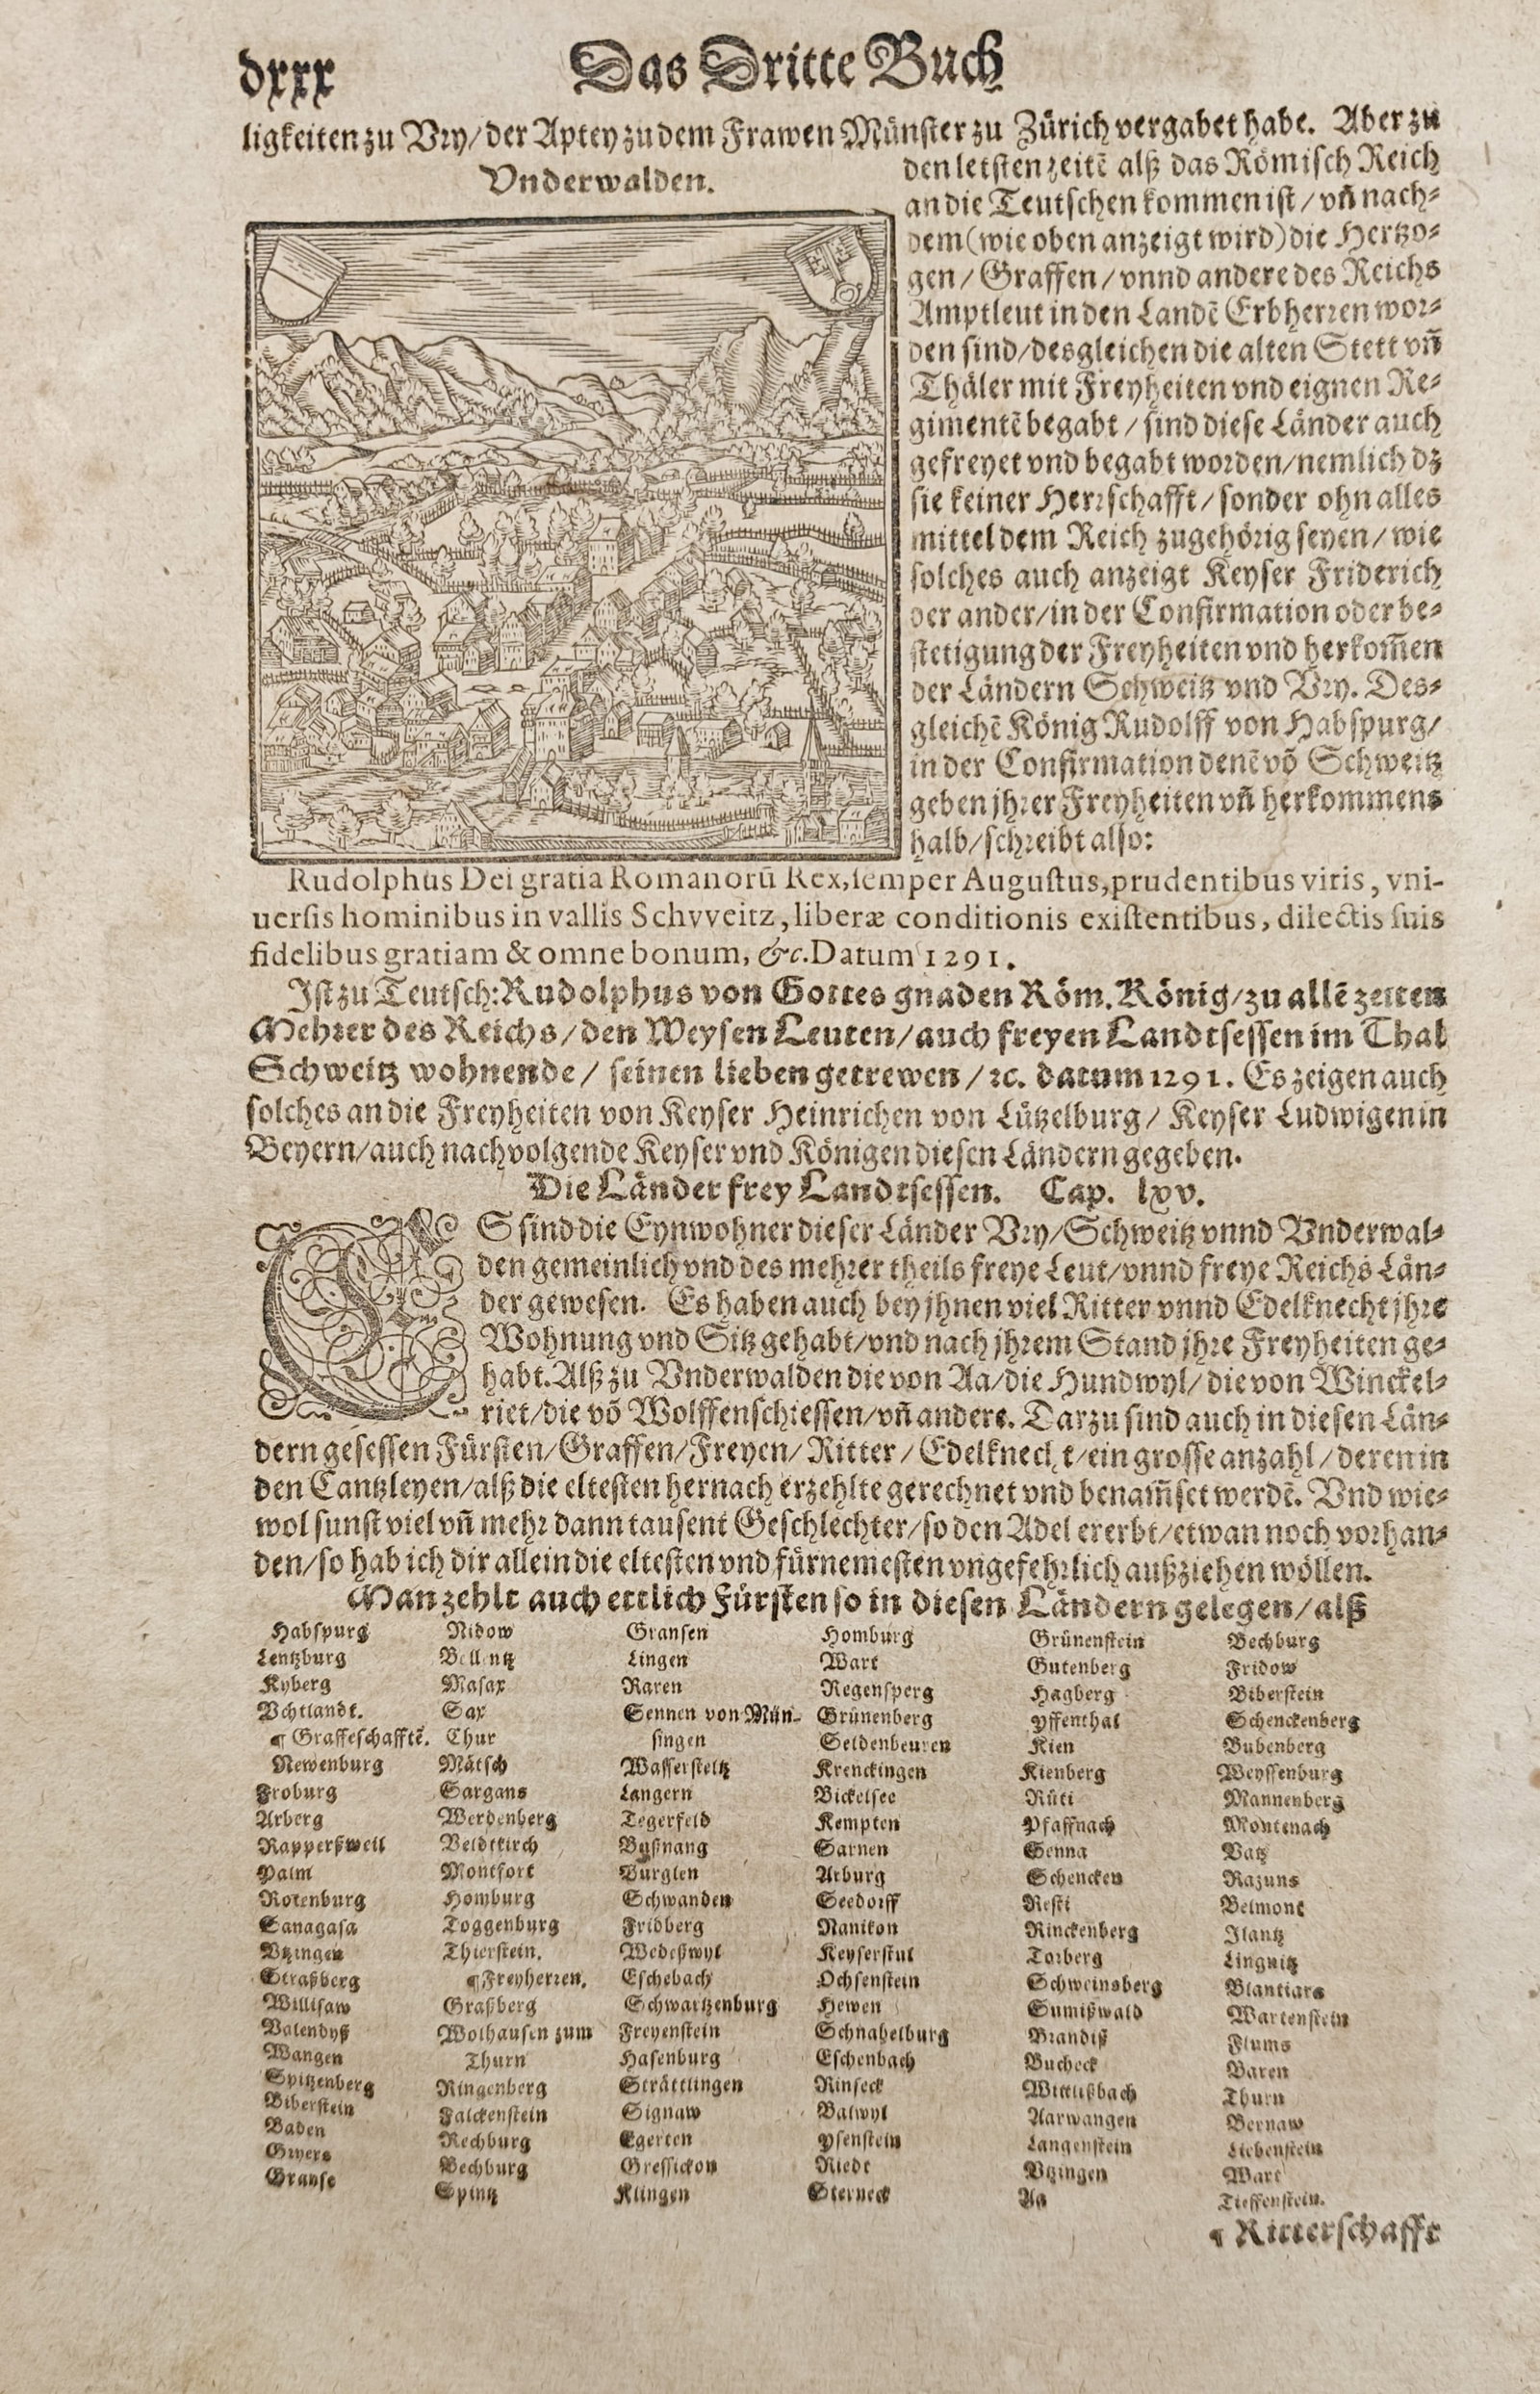 dxxx
Das Dritte Buch
ligkeiten zu Vry/ der Aptey zu dem Frawen Münster zu Zürich vergabet habe. Aber zu
Vnderwalden.
den letsten zeitē alß das Römisch Reich
an die Teutschen kommen ist/ vñ nach-
dem (wie oben anzeigt wird) die Hertzo-
gen/ Graffen/ vnnd andere des Reichs
Amptleut in den Landē Erbherren wor-
den sind/ desgleichen die alten Stett vñ
Thäler mit Freyheiten vnd eignen Re-
gimentē begabt/ sind diese Länder auch
gefreyet vnd begabt worden/ nemlich dz
sie keiner Herrschafft/ sonder ohn alles
mittel dem Reich zugehörig seyen/ wie
solches auch anzeigt Keyser Friderich
der ander/ in der Confirmation oder be-
stetigung der Freyheiten vnd herkom̄en
der Ländern Schweitz vnd Vry. Des-
gleichē König Rudolff von Habspurg/
in der Confirmation denē võ Schweitz
geben jhrer Freyheiten vñ herkommens
halb/ schreibt also:
Rudolphus Dei gratia Romanorū Rex, semper Augustus, prudentibus viris, vni-
uersis hominibus in vallis Schvveitz, liberæ conditionis existentibus, dilectis suis
fidelibus gratiam & omne bonum, &c. Datum 1291.
Ist zu Teutsch: Rudolphus von Gottes gnaden Röm. König/ zu allē zeiten
Mehrer des Reichs/ den Weysen Leuten/ auch freyen Landtsessen im Thal
Schweitz wohnende/ seinen lieben getrewen/ ꝛc. datum 1291. Es zeigen auch
solches an die Freyheiten von Keyser Heinrichen von Lützelburg/ Keyser Ludwigen in
Beyern/ auch nachvolgende Keyser vnd Königen diesen Ländern gegeben.
Die Länder frey Landtsessen. Cap. lxv.
ES sind die Eynwohner dieser Länder Vry/ Schweitz vnnd Vnderwal-
den gemeinlich vnd des mehrer theils freye Leut/ vnnd freye Reichs Län-
der gewesen. Es haben auch bey jhnen viel Ritter vnnd Edelknecht jhre
Wohnung vnd Sitz gehabt/ vnd nach jhrem Stand jhre Freyheiten ge-
habt. Alß zu Vnderwalden die von Aa/ die Hundwyl/ die von Winckel-
riet/ die võ Wolffenschiessen/ vñ andere. Darzu sind auch in diesen Län-
dern gesessen Fürsten/ Graffen/ Freyen/ Ritter/ Edelknecht/ ein grosse anzahl/ deren in
den Cantzleyen/ alß die eltesten hernach erzehlte gerechnet vnd benam̄set werdē. Vnd wie-
wol sunst viel vñ mehr dann tausent Geschlechter/ so den Adel ererbt/ etwan noch vorhan-
den/ so hab ich dir allein die eltesten vnd fürnemesten vngefehrlich außziehen wöllen.
Man zehlt auch ettlich Fürsten so in diesen Ländern gelegen/ alß
Habspurg
Lentzburg
Kyberg
Vchtlandt.
¶ Graffeschafftē.
Newenburg
Froburg
Arberg
Rapperßweil
Palm
Rotenburg
Sanagasa
Vtzingen
Straßberg
Willisaw
Valendyß
Wangen
Spitzenberg
Biberstein
Baden
Gryers
Granse
Nidow
Bellentz
Masax
Sax
Chur
Mätsch
Sargans
Werdenberg
Veldtkirch
Montfort
Homburg
Toggenburg
Thierstein.
¶ Freyherren.
Graßberg
Wolhausen zum
Thurn
Ringenberg
Falckenstein
Rechburg
Bechburg
Spintz
Gransen
Lingen
Raren
Sennen von Mün-
singen
Wassersteltz
Langern
Tegerfeld
Bußnang
Burglen
Schwanden
Fridberg
Wedeßwyl
Eschebach
Schwartzenburg
Freyenstein
Hasenburg
Strättlingen
Signaw
Egerten
Gressickon
Klingen
Homburg
Wart
Regensperg
Grünenberg
Seldenbeuren
Krenckingen
Bickelsee
Kempten
Sarnen
Arburg
Seedorff
Nanikon
Keyserstul
Ochsenstein
Hewen
Schnabelburg
Eschenbach
Rinseck
Balwyl
Ysenstein
Riedt
Sterneck
Grünenstein
Gutenberg
Hagberg
Yffenthal
Kien
Kienberg
Rüti
Pfaffnach
Senna
Schencken
Resti
Rinckenberg
Torberg
Schweinsberg
Sumißwald
Brandiß
Bucheck
Wittlißbach
Aarwangen
Langenstein
Vtzingen
Aa
Bechburg
Fridow
Biberstein
Schenckenberg
Bubenberg
Weyssenburg
Mannenberg
Montenach
Vatz
Razuns
Belmont
Ilantz
Lingnitz
Blantiars
Wartenstein
Flums
Varen
Thurn
Bernaw
Liebenstein
Wart
Tieffenstein.
¶ Ritterschafft